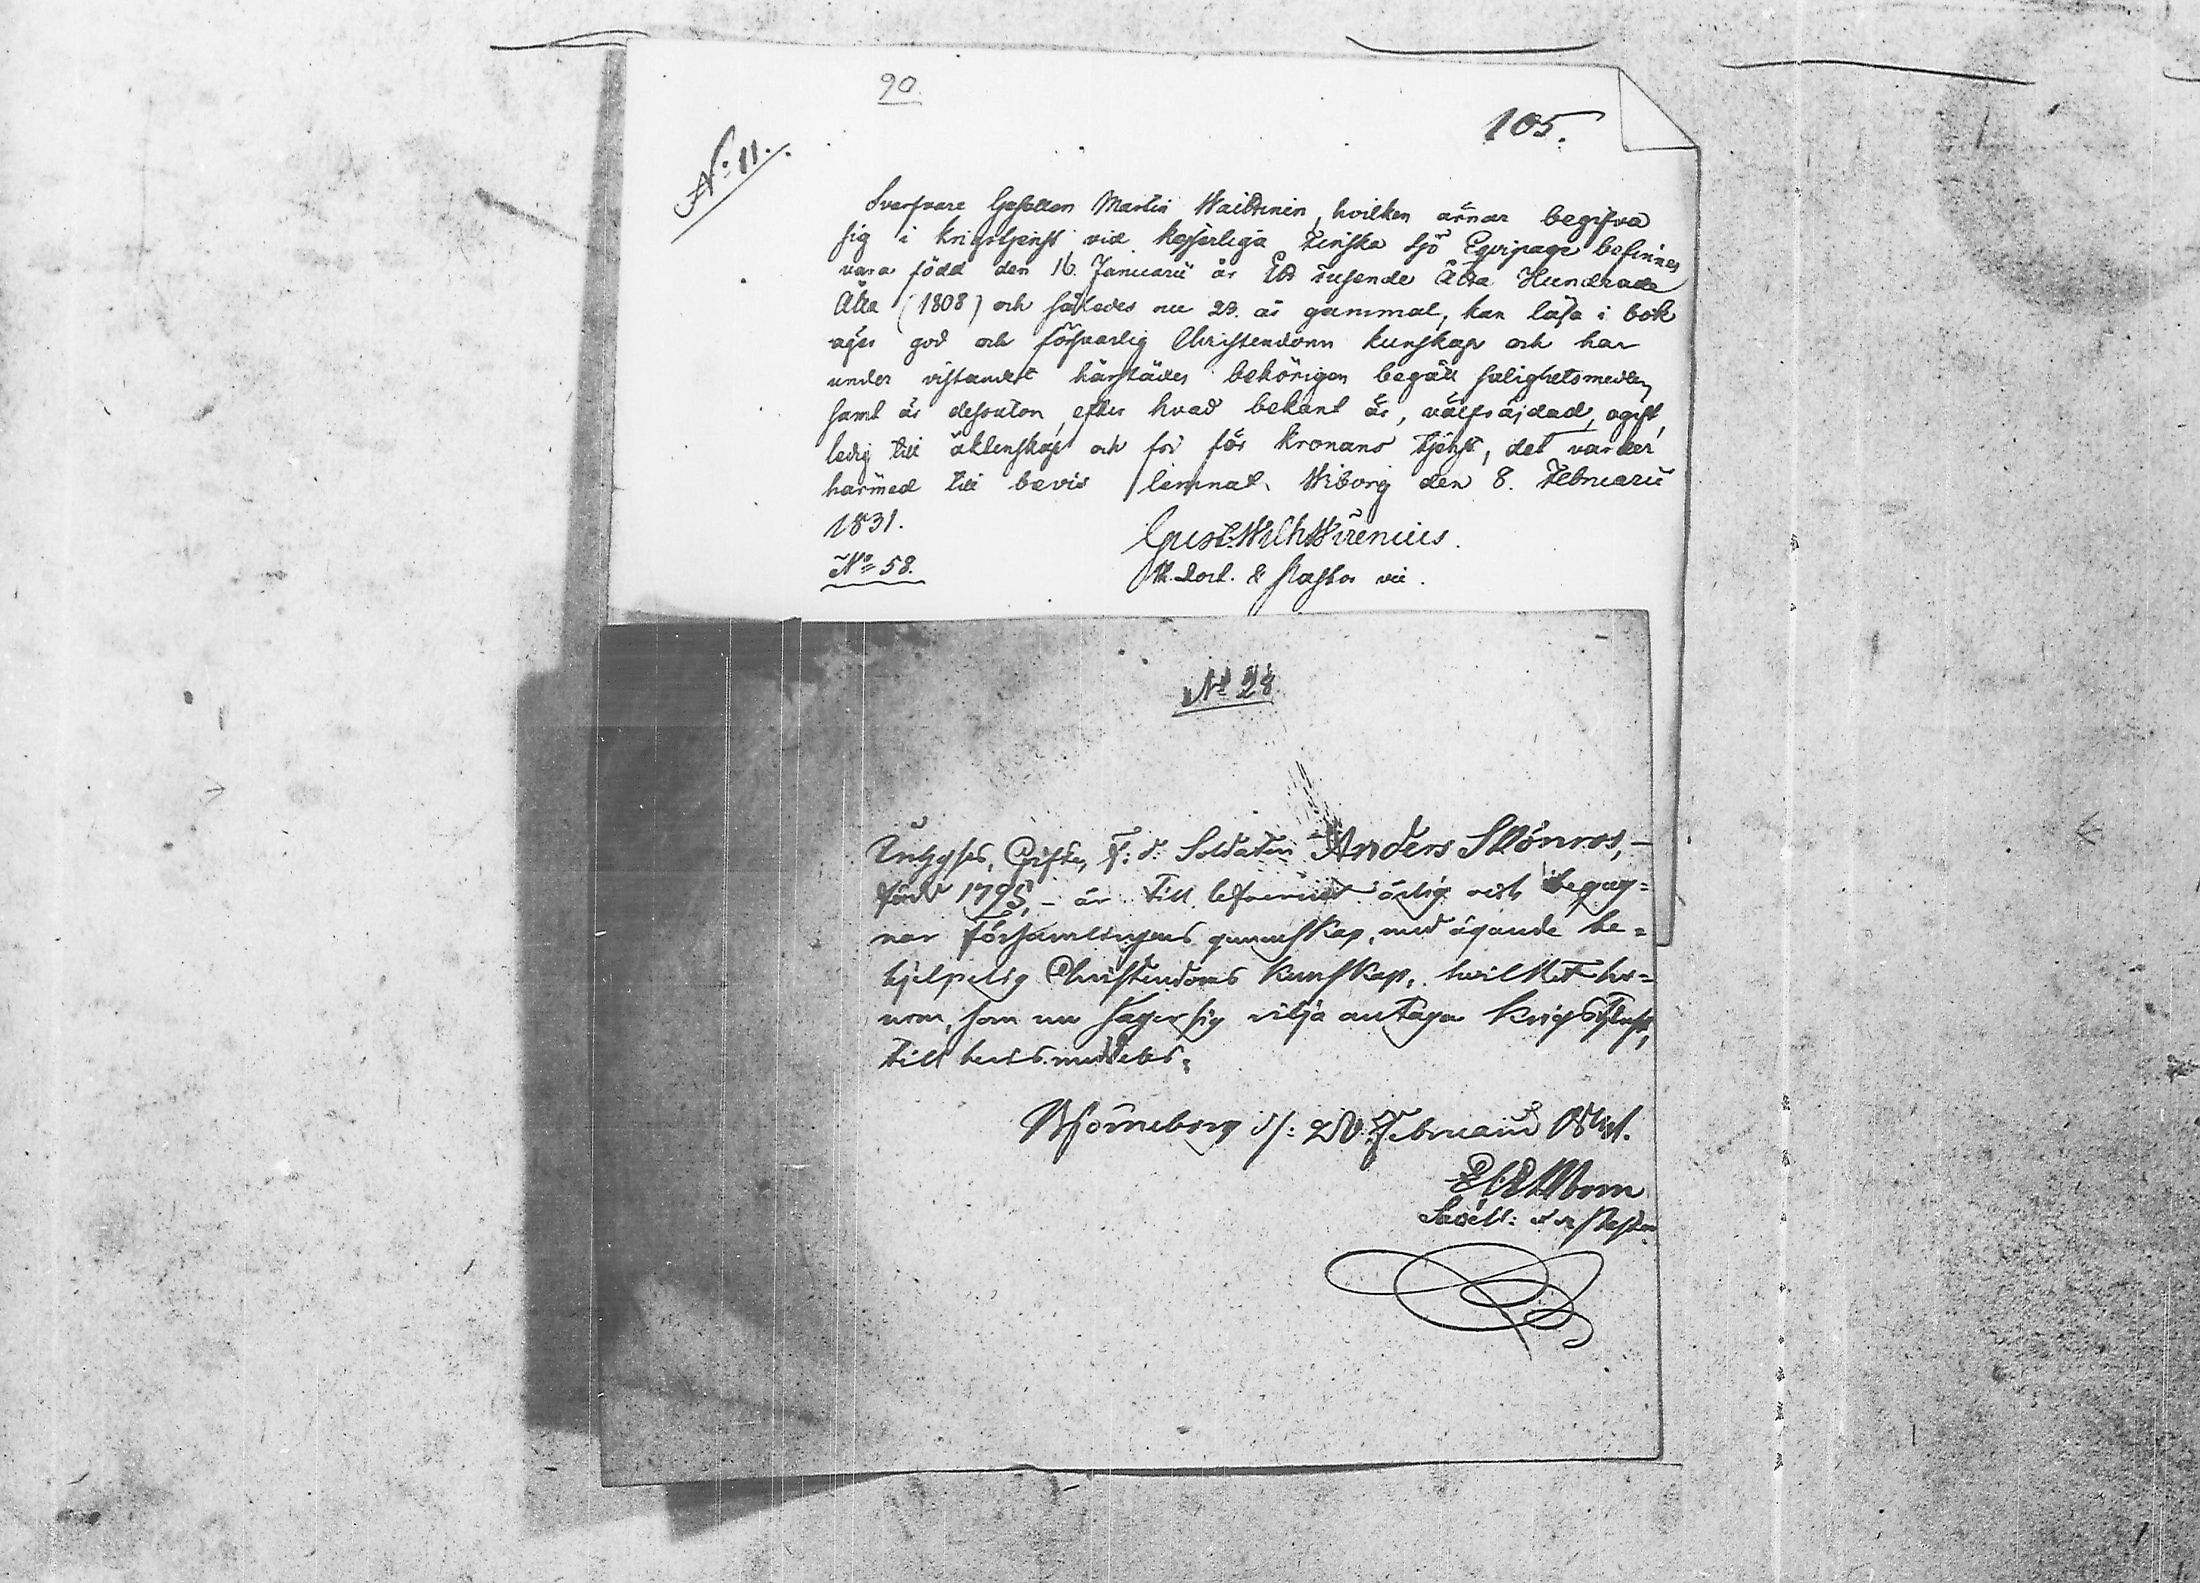 90.
105.
No: 11.
Svarfvare Gesällen Martin Waittinen, hvilken ärnar begifva
sig i krigstjenst vid Kejserliga Finska Sjö Eqvipage befinnes
vara född den 16. Januarii år Ett tusende Åtta Hundrade
Åtta (1808) och således nu 23. år gammal, kan läsa i bok
äger god och försvarlig Christendoms kunskap och har
under vistandet härstädes behörigen begått salighetsmedlen,
samt är dessutom, efter hvad bekant är, välfräjdad, ogift,
ledig till äktenskap och fri för Kronans tjenst, det varder
härmed till bevis lemnat. Wiborg den 8. Februarii
1831.
Gust. Wilh. Wirenius.
No 58.
Th. Doct. & Pastor
No 28
Inhyses, Gifte, F: d: Soldaten Anders Stönros, –
född 1795, – är till lefvernet ärlig och begag=
nar Församlingens gunnskap, med ägande be=
hjelpelig Christendoms kunskap, hvilket ho=
nom, som nu säger sig vilja antaga Krigstjenst,
till bevis meddelas;
Björneborg d: 20 Februarii